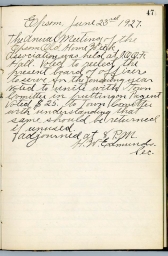 47
Epsom, June 23rd 1927.
The Annual Meeting of the
Epsom Old Home Week
Association was held at
Hall. Voted to reelect the
present board of officers
to serve for the ensuing year
Voted to unite with Town
Comittee in putting on Pageant
Voted $25. to Town Comittee
with understanding that
same should be returned
if unused.
Adjourned at 8 P.M.
H. W. Edmunds.
Sec.